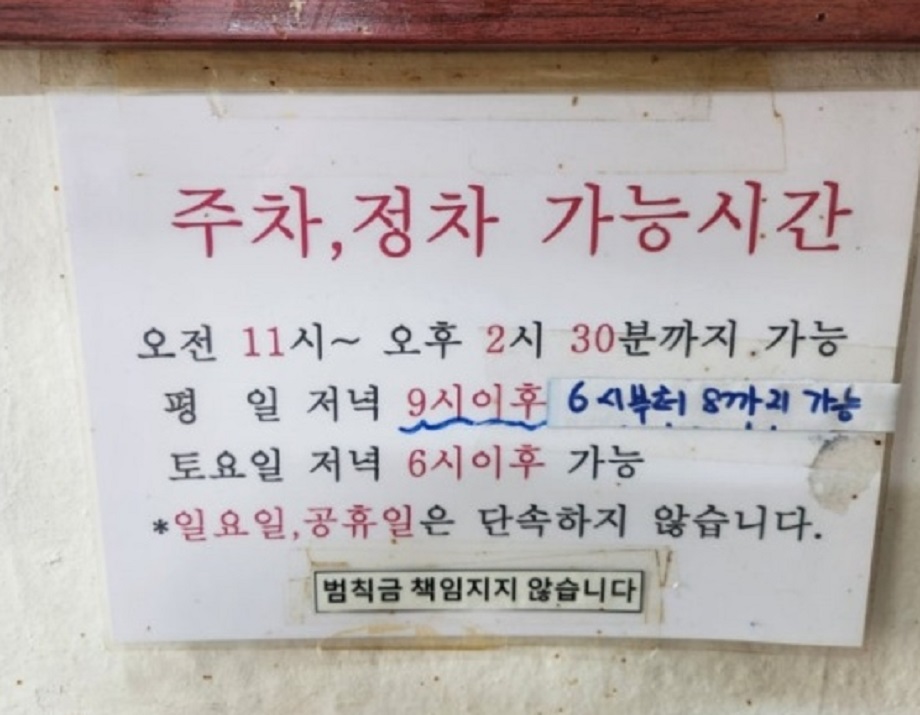 주차,정차 가능시간
오전 11시~ 오후 2시 30분까지 가능
평 일 저녁 9시이후 6시부터 8까지 가능
토요일 저녁 6시이후 가능
*일요일,공휴일은 단속하지 않습니다.
범칙금 책임지지 않습니다